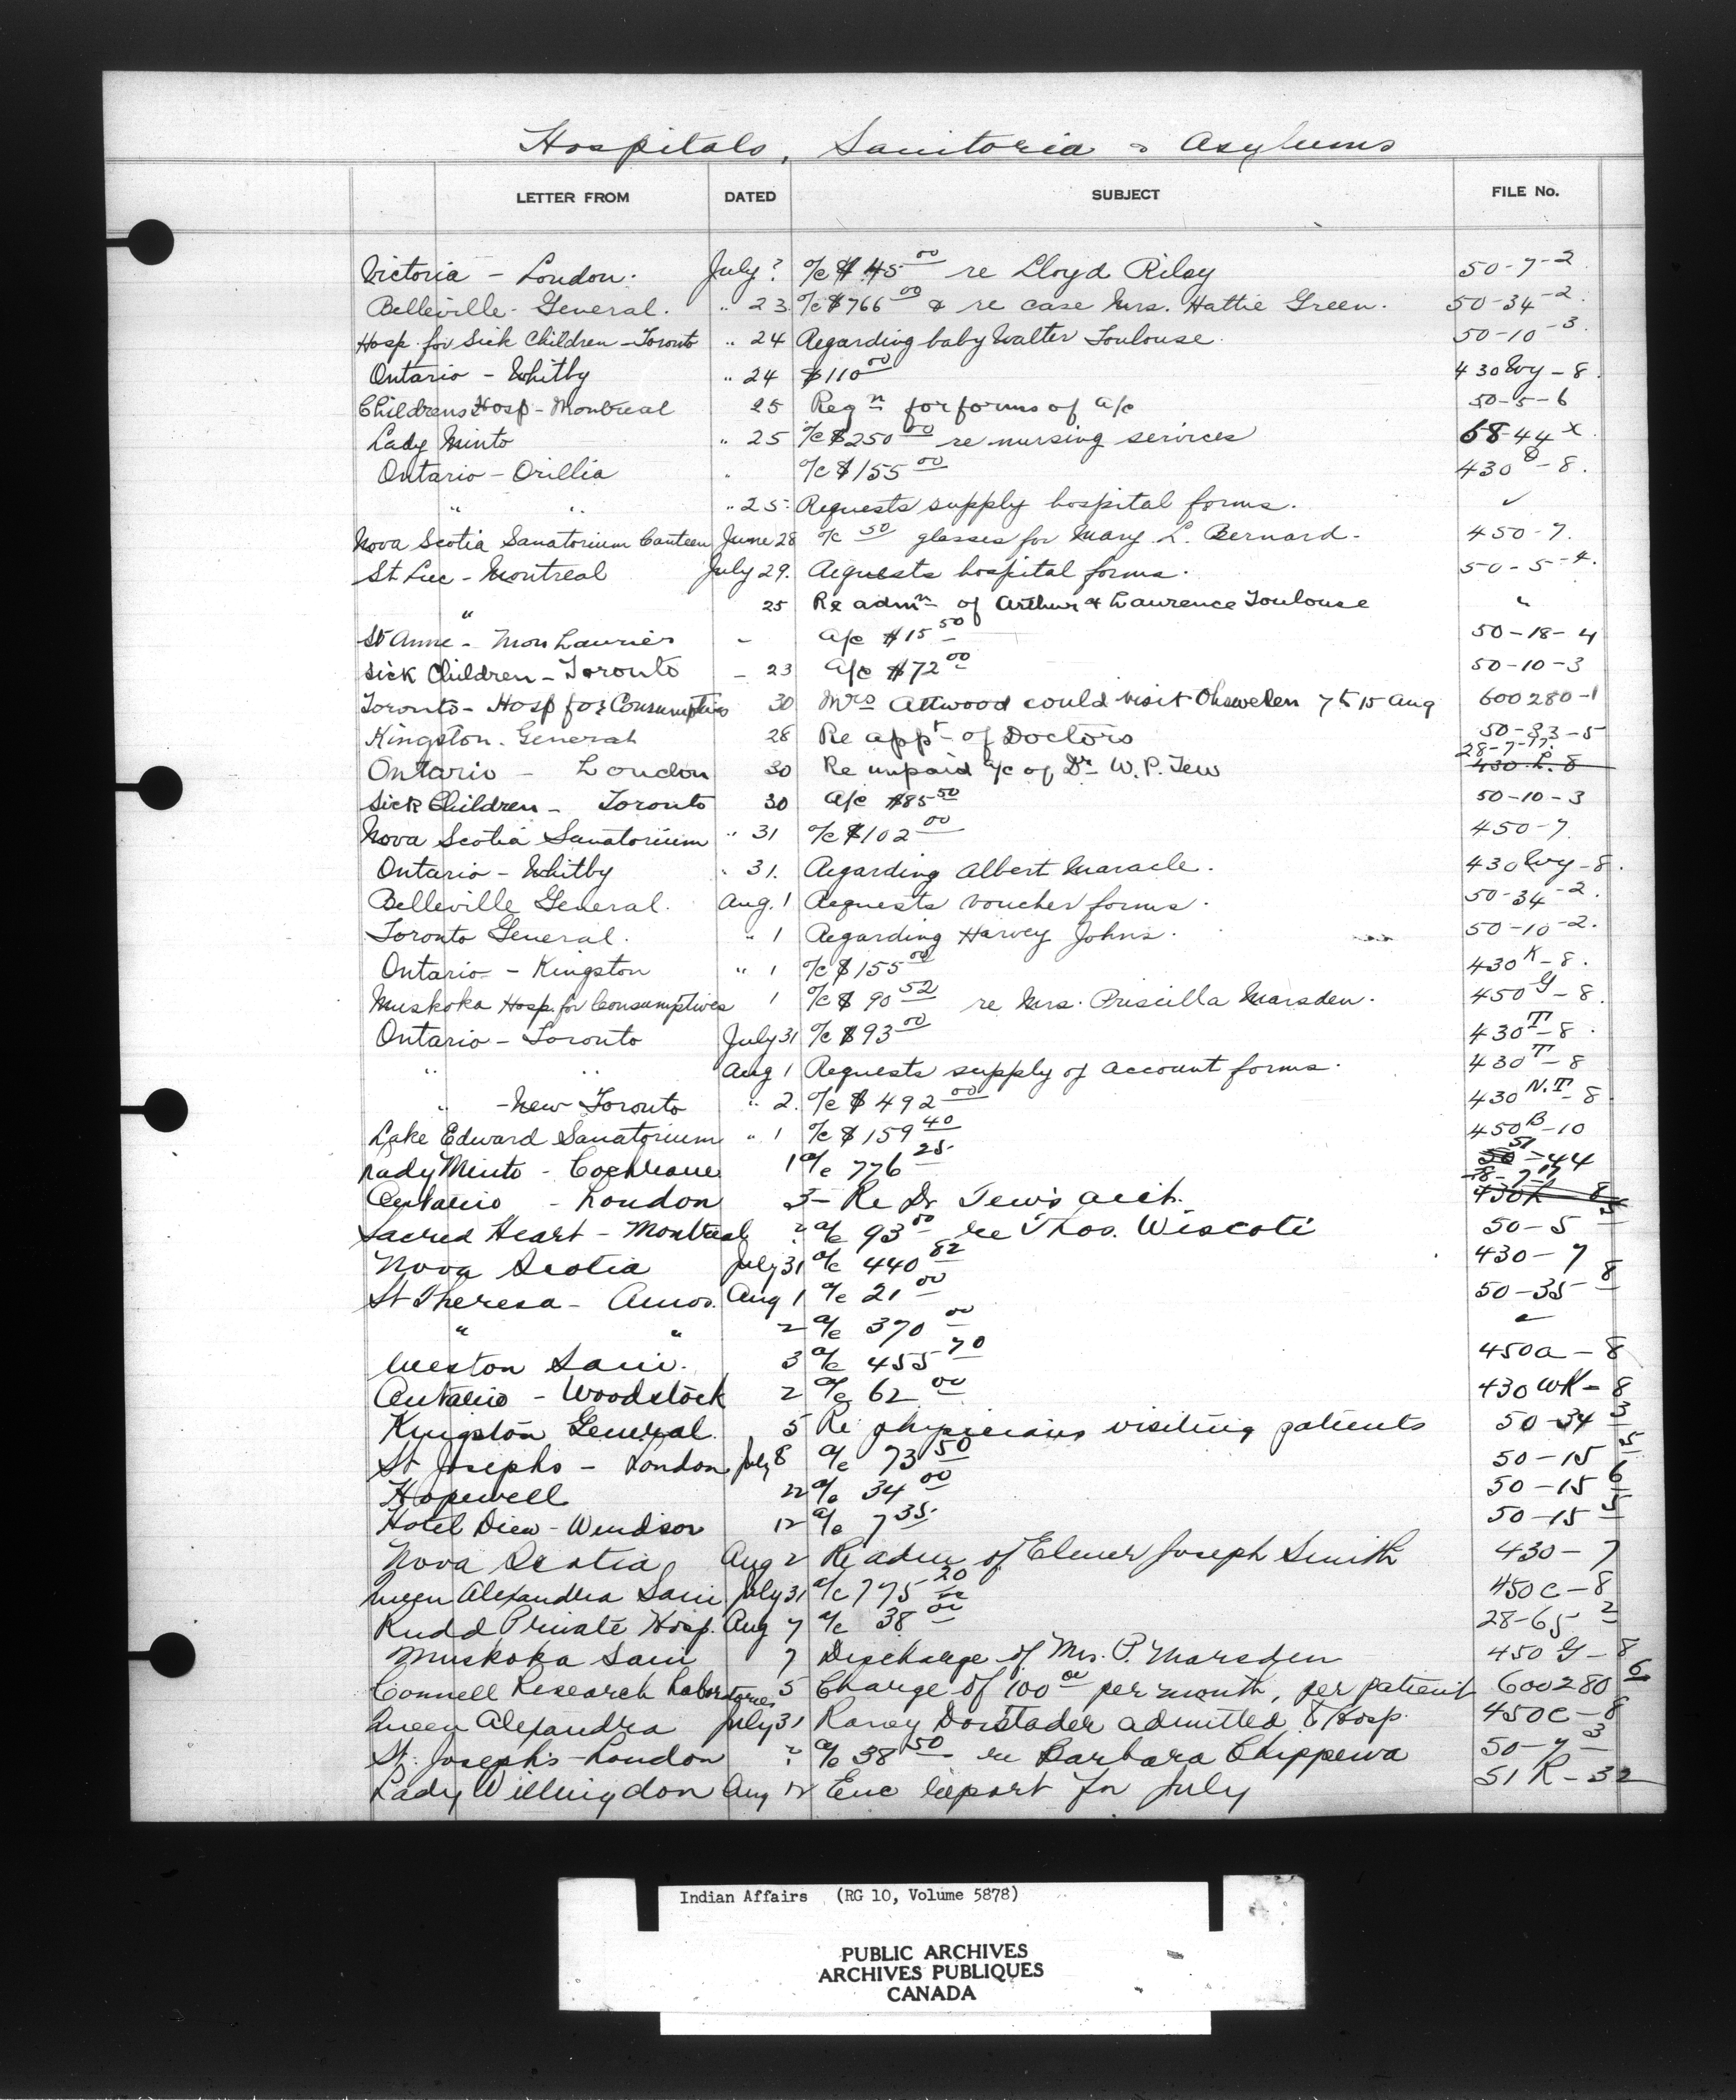 Hospitals, Sanitoria & Asylums
LETTER FROM DATED SUBJECT FILE No.
Victoria - London. July ? a/c $45 00 re Lloyd Riley 50-7-2
Belleville General. " 23 a/c $766 00 & re case Mrs. Hattie Green. 50-34-2.
Hosp. for Sick Children - Toronto " 24 Regarding baby Walter Toulouse. 50-10-3.
Ontario - Whitby " 24 $110 00 430 Wy-8.
Childrens Hosp - Montreal 25 Reqn for forms of a/c 50-5-6
Lady Minto " 25 a/c $250 00 re nursing services 58-44 x
Ontario - Orillia " a/c $155 00 430 O-8.
" " " 25. Requests supply hospital forms. ✓
Nova Scotia Sanatorium Canteen June 28 a/c 50 glasses for Mary L. Bernard. 450-7.
St Luc - Montreal July 29. Requests hospital forms. 50-5-4.
" 25 Re admn of Arthur & Laurence Toulouse "
St Anne - Mon Laurier - a/c $15 50 50-18-4
Sick Children - Toronto - 23 a/c $72 00 50-10-3
Toronto - Hosp for Consumptives 30 Mrs Attwood could visit Ohsweken 7 to 15 Aug 600280-1
Kingston General 28 Re appt of Doctors 50-33-5
Ontario - London 30 Re unpaid a/c of Dr W.P. Tew 28-7-17. 430.L.8
Sick Children - Toronto 30 a/c $85 50 50-10-3
Nova Scotia Sanatorium " 31 a/c $102 00 450-7.
Ontario - Whitby " 31. Regarding Albert Maracle. 430 Wy-8.
Belleville General. Aug. 1 Requests voucher forms. 50-34-2.
Toronto General. " 1 Regarding Harvey Johns. 50-10-2.
Ontario - Kingston " 1 a/c $155 00 430 K-8.
Muskoka Hosp. for Consumptives 1 a/c $90 52 re Mrs. Priscilla Marsden. 450 G-8.
Ontario - Toronto July 31 a/c $93 00 430 T-8.
" " Aug 1 Requests supply of account forms. 430 T-8
" - New Toronto " 2. a/c $492 00 430 N.T-8
Lake Edward Sanatorium " 1 a/c $159 40 450 B-10
Lady Minto - Cochrane 1 a/c 776 25 51-44
Ontario - London 3 - Re Dr Tew's acct. 28-7-17 430 L 8
Sacred Heart - Montreal ? a/c 93 00 re Thos. Wiscoti 50-5 5
Nova Scotia July 31 a/c 440 82 430-7
St Theresa - Amos. Aug 1 a/c 21 00 50-35 8
" " 2 a/c 370 00 "
Weston Sani. 3 a/c 455 70 450a-8
Ontario - Woodstock 2 a/c 62 00 430 WK-8
Kingston General. 5 Re physicians visiting patients 50-34 3
St Josephs - London July 8 a/c 73 50 50-15 5
Hopewell 22 a/c 34 00 50-15 6
Hotel Dieu - Windsor 12 a/c 7 35 50-15 5
Nova Scotia Aug 2 Re adm of Elmer Joseph Smith 430-7
Queen Alexandra Sani July 31 a/c 775 20 450 C-8
Rudd Private Hosp. Aug 7 a/c 38 00 28-65 2
Muskoka Sani 7 Discharge of Mrs. P. Marsden 450 G-8
Connell Research Laboratories 5 Charge of 100 00 per month, per patient 600280 6
Queen Alexandra July 31 Dorstader admitted to Hosp. 450C-8
St. Joseph's - London ? a/c 38 50 re Barbara Chippewa 50-7 3
Lady Willingdon Aug 12 Enc Report for July 51 R-32
Indian Affairs (RG 10, Volume 5878)
PUBLIC ARCHIVES
ARCHIVES PUBLIQUES
CANADA